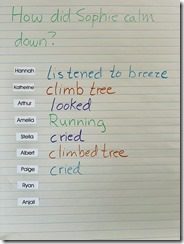 How did Sophie calm
down?
Hannah listened to breeze
Katherine climb tree
Arthur looked
Amelia Running
Stella cried
Albert climbed tree
Paige cried
Ryan
Anjali